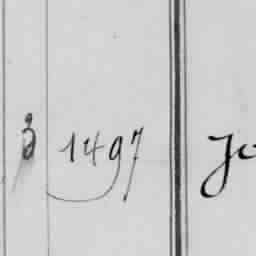 3 1497 Jo